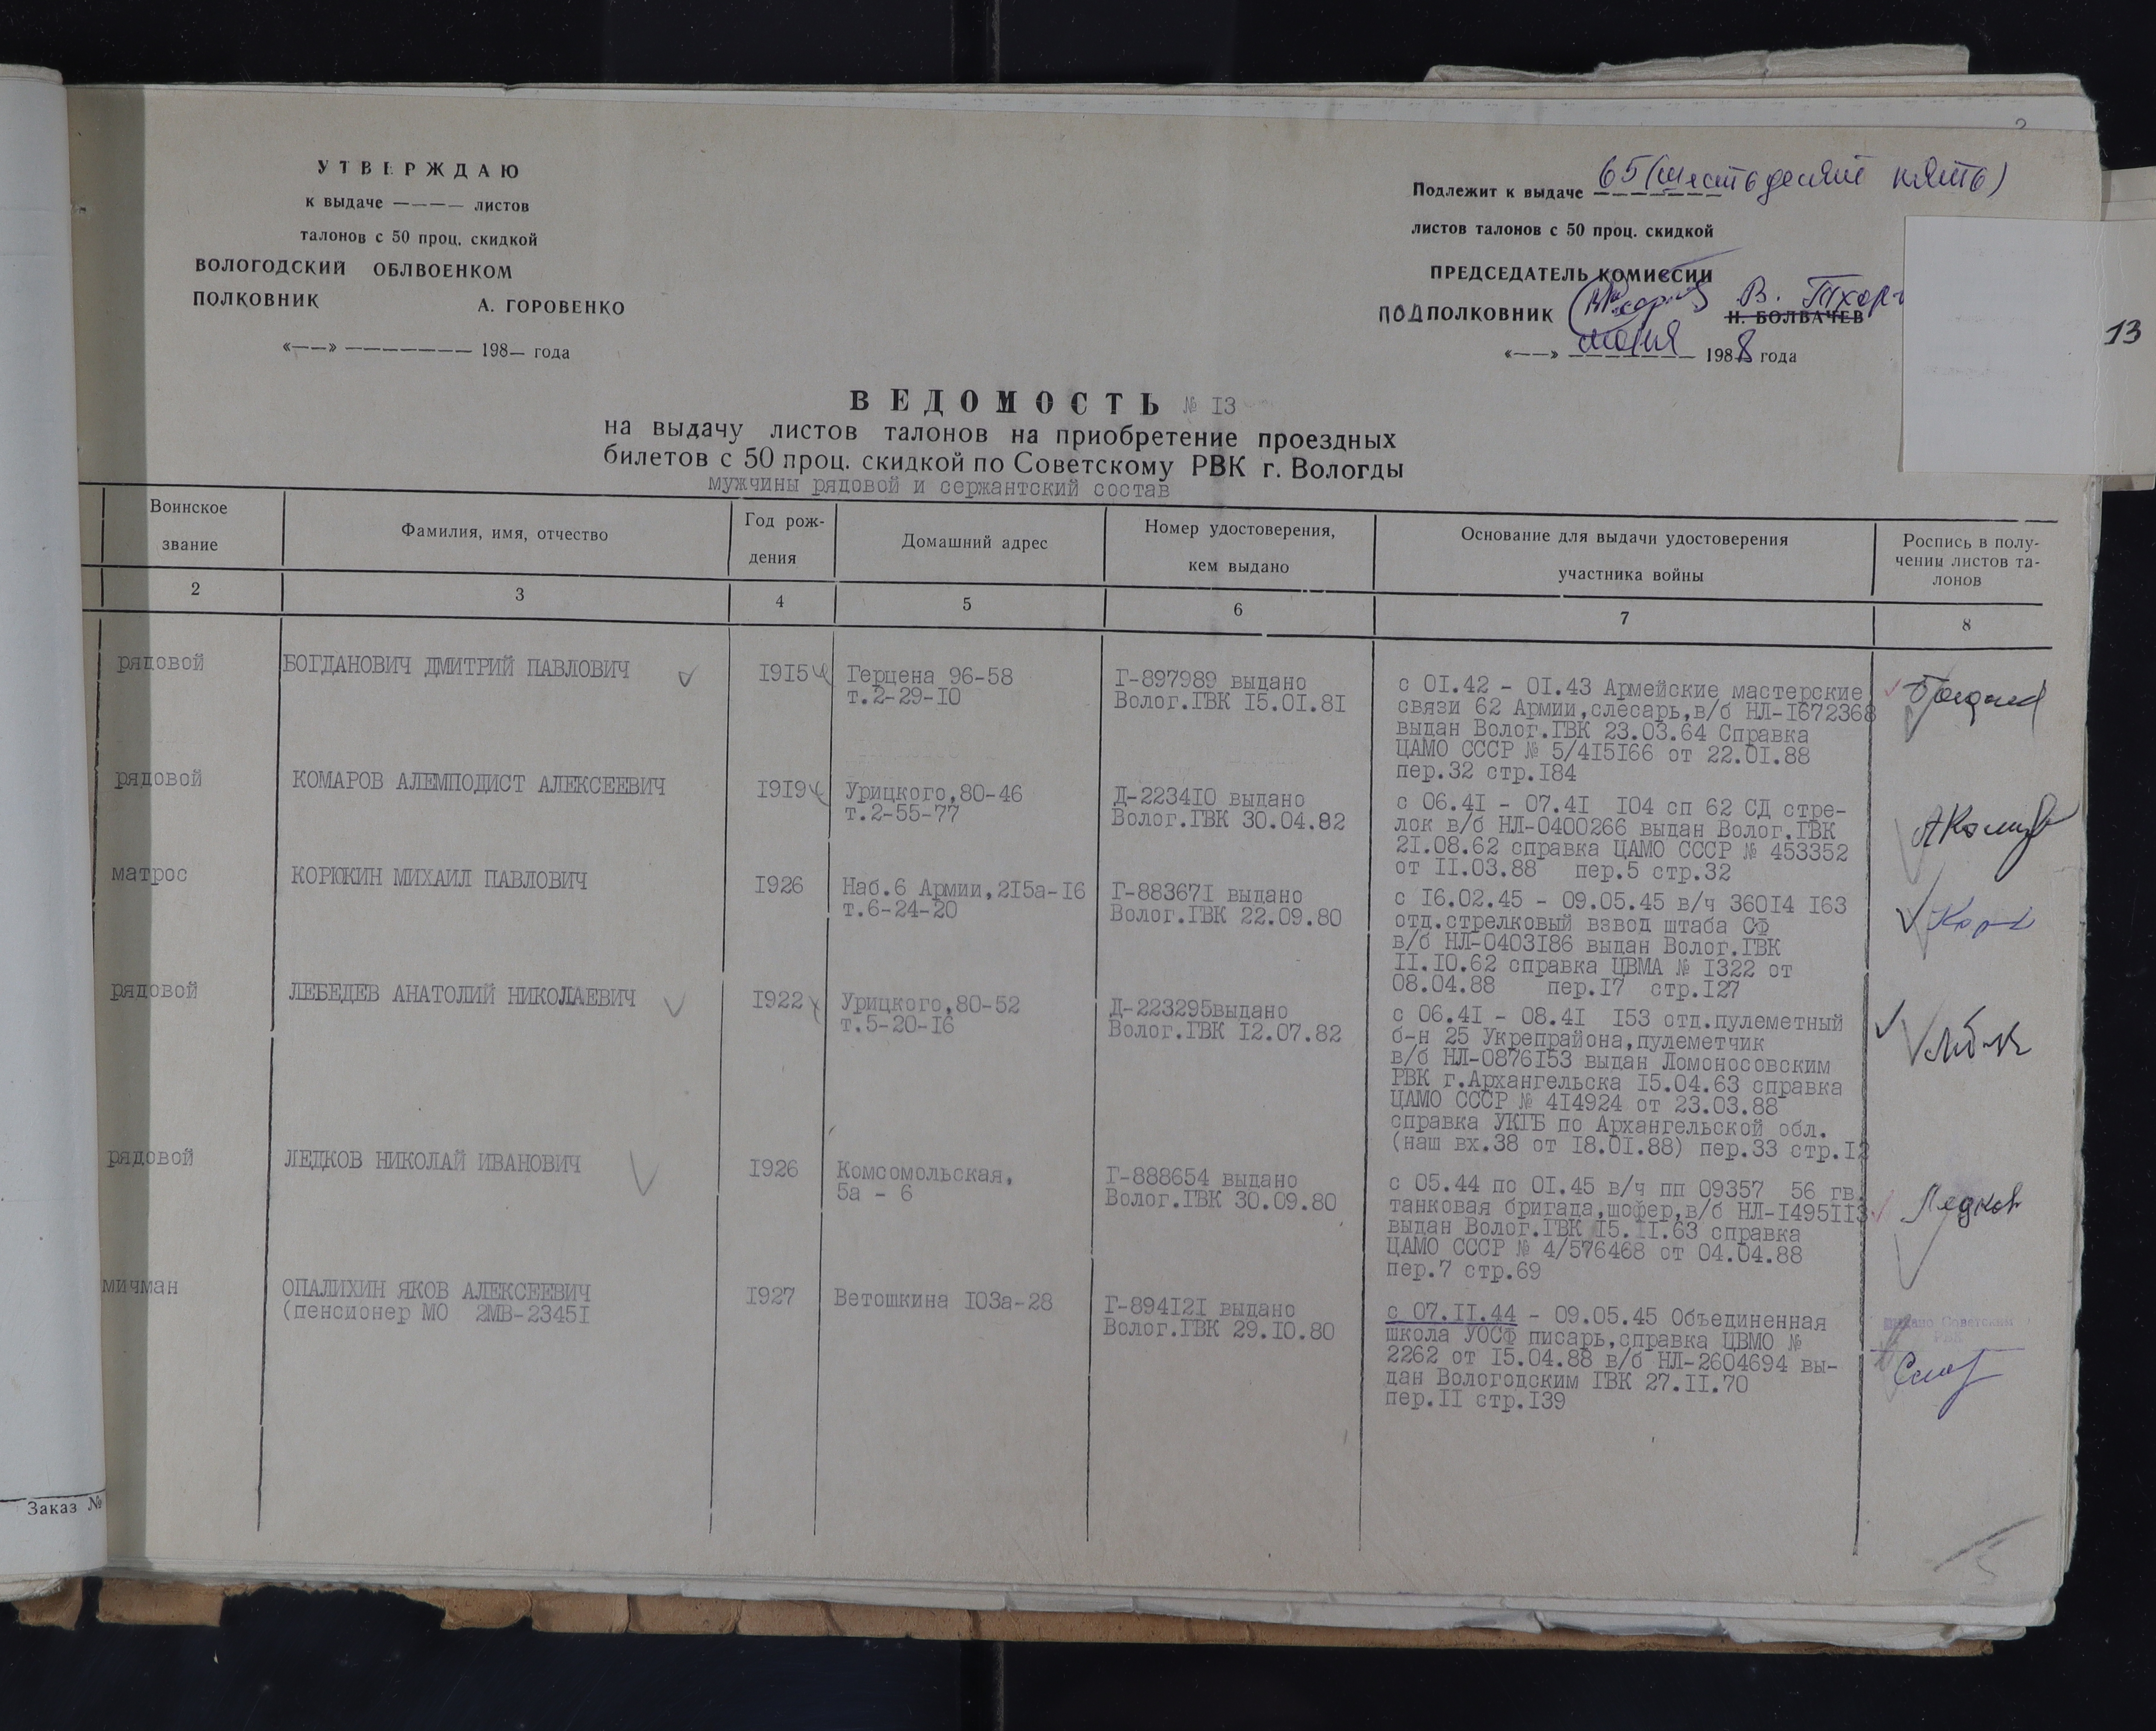 УТВЕРЖДАЮ
к выдаче ———— листов
талонов с 50 проц. скидкой
ВОЛОГОДСКИЙ ОБЛВОЕНКОМ
ПОЛКОВНИК А. ГОРОВЕНКО
«——» ——————— 198— года
Подлежит к выдаче 65 (шестьдесят пять)
листов талонов с 50 проц. скидкой
ПРЕДСЕДАТЕЛЬ КОМИССИИ
ПОДПОЛКОВНИК В.
Н. БОЛВАЧЕВ
«——» 1988 года
13
ВЕДОМОСТЬ № 13
на выдачу листов талонов на приобретение проездных
билетов с 50 проц. скидкой по Советскому РВК г. Вологды
мужчины рядовой и сержантский состав
Воинское
звание
Фамилия, имя, отчество
Год рож-
дения
Домашний адрес
Номер удостоверения,
кем выдано
Основание для выдачи удостоверения
участника войны
Роспись в полу-
чении листов та-
лонов
2 3 4 5 6 7 8
рядовой
БОГДАНОВИЧ ДМИТРИЙ ПАВЛОВИЧ
1915
Герцена 96-58
т.2-29-10
Г-897989 выдано
Волог.ГВК 15.01.81
с 01.42 - 01.43 Армейские мастерские
связи 62 Армии,слесарь,в/б НЛ-1672368
выдан Волог.ГВК 23.03.64 Справка
ЦАМО СССР № 5/415166 от 22.01.88
пер.32 стр.184
рядовой
КОМАРОВ АЛЕМПОДИСТ АЛЕКСЕЕВИЧ
1919
Урицкого,80-46
т.2-55-77
Д-223410 выдано
Волог.ГВК 30.04.82
с 06.41 - 07.41 104 сп 62 СД стре-
лок в/б НЛ-0400266 выдан Волог.ГВК
21.08.62 справка ЦАМО СССР № 453352
от 11.03.88 пер.5 стр.32
матрос
КОРЮКИН МИХАИЛ ПАВЛОВИЧ
1926
Наб.6 Армии,215а-16
т.6-24-20
Г-883671 выдано
Волог.ГВК 22.09.80
с 16.02.45 - 09.05.45 в/ч 36014 163
отд.стрелковый взвод штаба СФ
в/б НЛ-0403186 выдан Волог.ГВК
11.10.62 справка ЦВМА № 1322 от
08.04.88 пер.17 стр.127
рядовой
ЛЕБЕДЕВ АНАТОЛИЙ НИКОЛАЕВИЧ
1922
Урицкого,80-52
т.5-20-16
Д-223295выдано
Волог.ГВК 12.07.82
с 06.41 - 08.41 153 отд.пулеметный
б-н 25 Укрепрайона,пулеметчик
в/б НЛ-0876153 выдан Ломоносовским
РВК г.Архангельска 15.04.63 справка
ЦАМО СССР № 414924 от 23.03.88
справка УКГБ по Архангельской обл.
(наш вх.38 от 18.01.88) пер.33 стр.12
рядовой
ЛЕДКОВ НИКОЛАЙ ИВАНОВИЧ
1926
Комсомольская,
5а - 6
Г-888654 выдано
Волог.ГВК 30.09.80
с 05.44 по 01.45 в/ч пп 09357 56 гв.
танковая бригада,шофер,в/б НЛ-1495113
выдан Волог.ГВК 15.11.63 справка
ЦАМО СССР № 4/576468 от 04.04.88
пер.7 стр.69
Ледков
мичман
ОПАЛИХИН ЯКОВ АЛЕКСЕЕВИЧ
(пенсионер МО 2МВ-23451
1927
Ветошкина 103а-28
Г-894121 выдано
Волог.ГВК 29.10.80
с 07.11.44 - 09.05.45 Объединенная
школа УОСФ писарь,справка ЦВМО №
2262 от 15.04.88 в/б НЛ-2604694 вы-
дан Вологодским ГВК 27.11.70
пер.11 стр.139
Заказ №